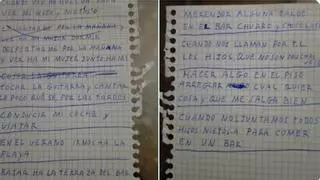 VER MI HIJO, NIETOS
LEVANTARME POR LA MAÑANA
Y VER MI MUJER DORMIR
DESPERTARME POR LA MAÑANA
Y VER HA MI MUJER JUNTO HA MI
TOCAR LA GUITARRA
TOCAR LA GUITARRA Y CANTAR
LO POCO QUE SE POR LAS TARDES
CONDUCIR MI COCHE Y
VIAJAR
EN EL VERANO IRNOS HA LA
PLAYA
BAJAR HA LA TERRAZA DEL BAR
MERENDAR ALGUNA TARDE
EN EL BAR CHURRO Y CHOCOLATE
CUANDO NOS LLAMAN POR T.L
LOS HIJOS, QUE NO SON MUCHAS
HACER ALGO EN EL PISO
ARREGLAR CUAL QUIER
COSA Y QUE ME SALGA BIEN
CUANDO NOS JUNTAMOS TODOS
HIJOS NIETO/A PARA COMER
EN UN BAR